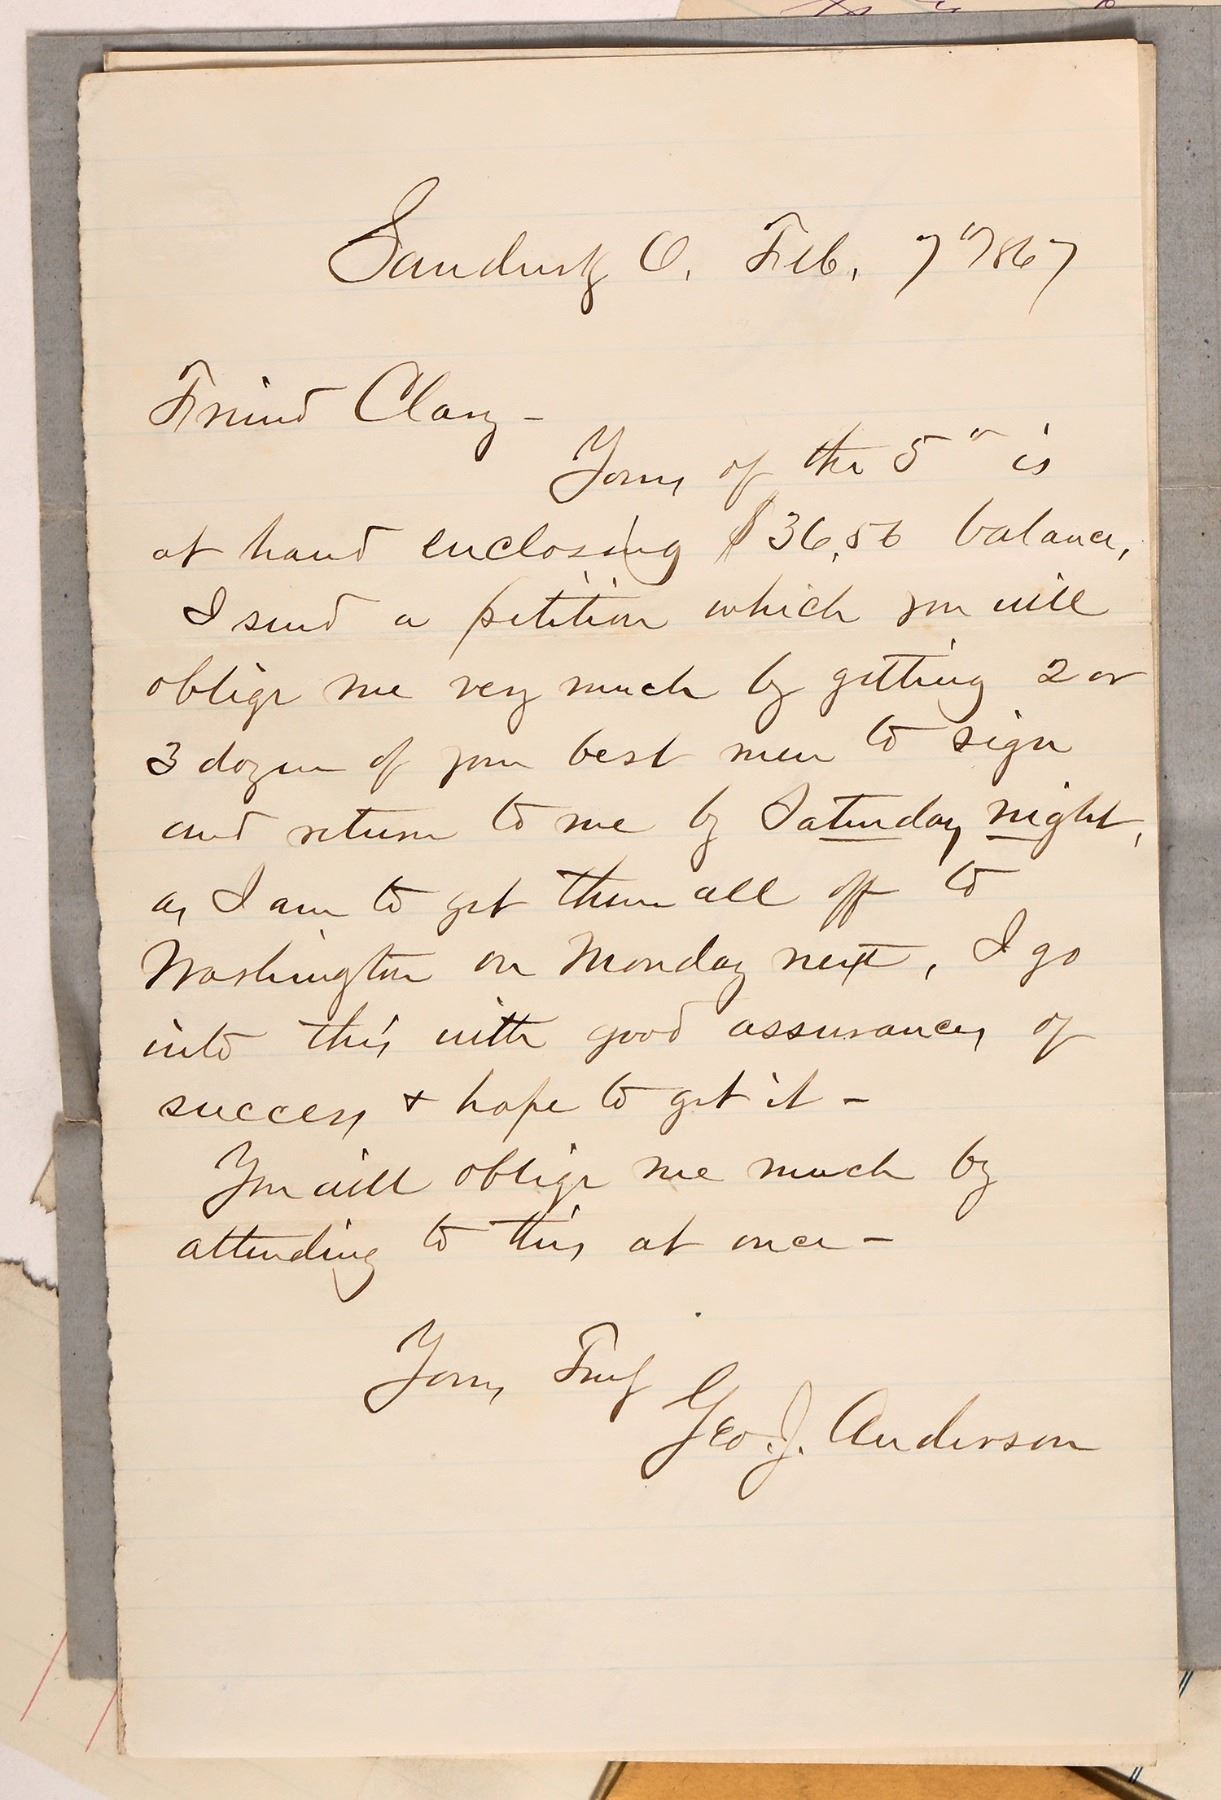 Sandusky O. Feb. 7" 1867
Friend Clary -
Yours of the 5" is
at hand enclosing $36.50 balance,
I send a petition which you will
oblige me very much by getting 2 or
3 dozen of your best men to sign
and return to me by Saturday night,
as I am to get them all off to
Washington on Monday next, I go
into this with good assurances of
success & hope to get it -
You will oblige me much by
attending to this at once -
Yours Truly
Geo. J. Anderson